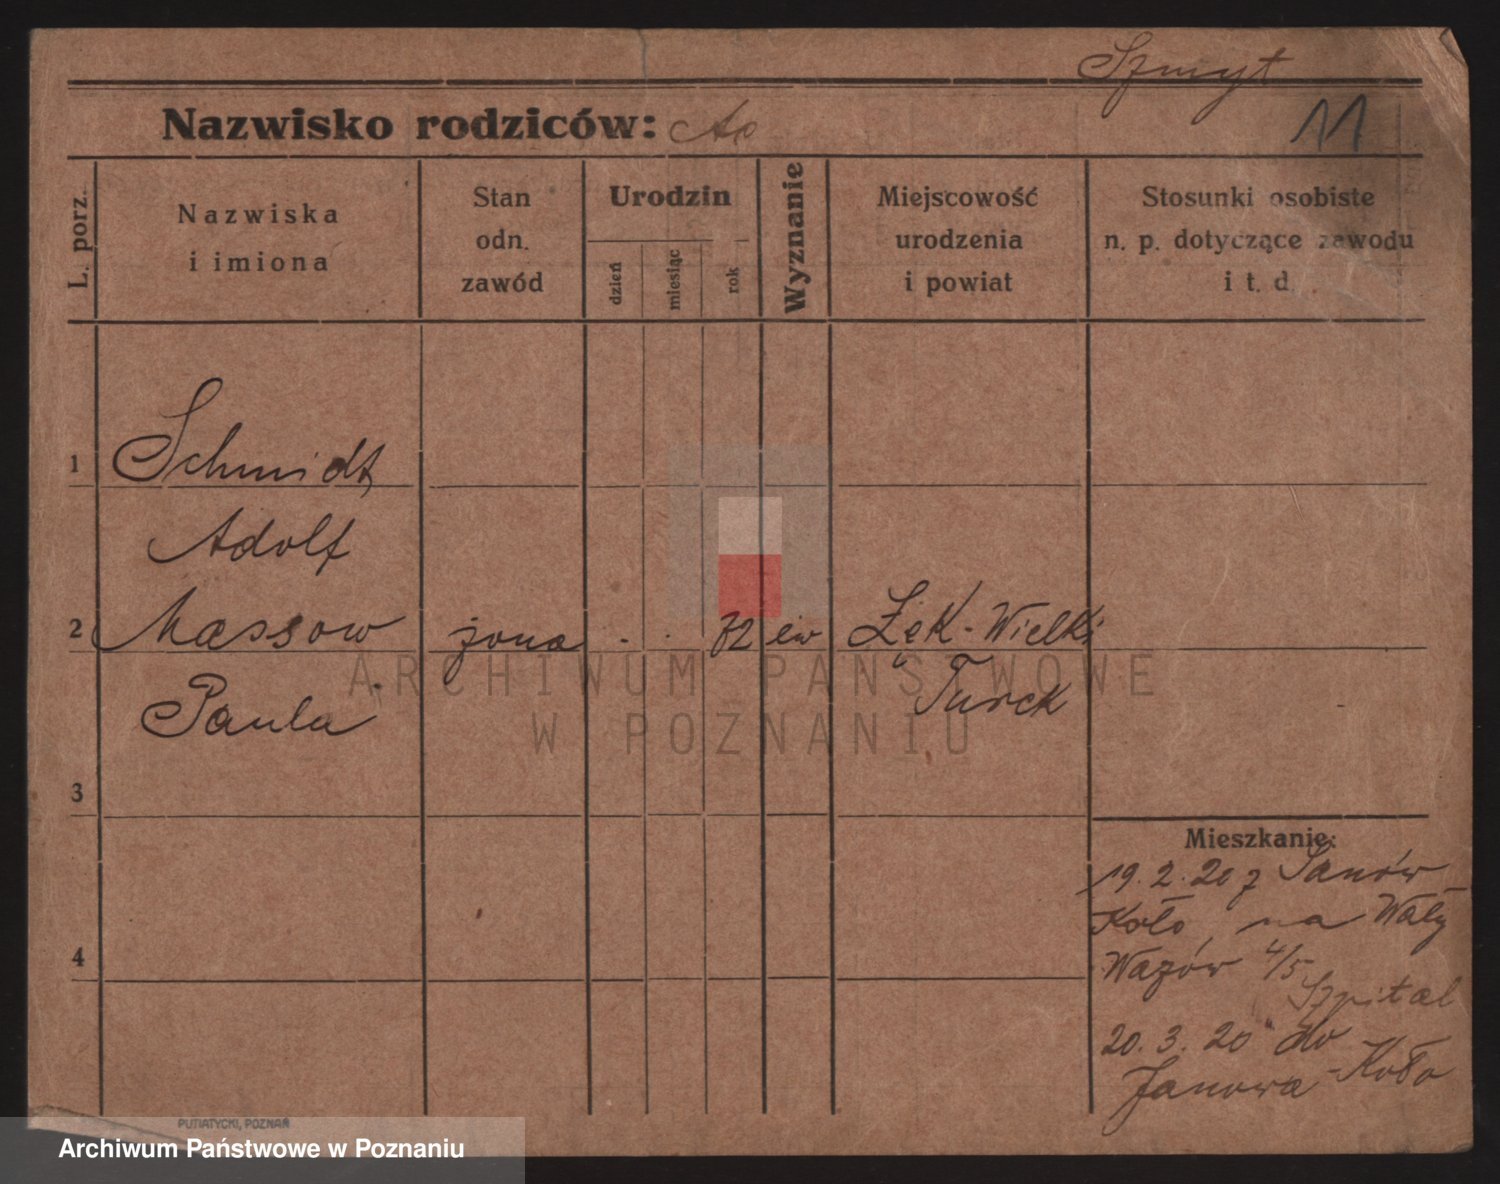 Szmyt
Nazwisko rodziców:
11
L. porz.
Nazwiska
i imiona
Stan
odn.
zawód
Urodzin
dzień
miesiąc
rok
Wyznanie
Miejscowość
urodzenia
i powiat
Stosunki osobiste
n. p. dotyczące zawodu
i t. d.
1
Schmidt
Adolf
2 Massow żona - . 72 ew Łęk-Wielki
Paula Turek
3
4
Mieszkanie:
19.2.20 z Janów
Koło, na Wały
Wazów 4/5
Szpital
20.3.20 do
Janowa-Koło
ARCHIWUM PAŃSTWOWE
W POZNANIU
PUTIATYCKI, POZNAŃ
Archiwum Państwowe w Poznaniu